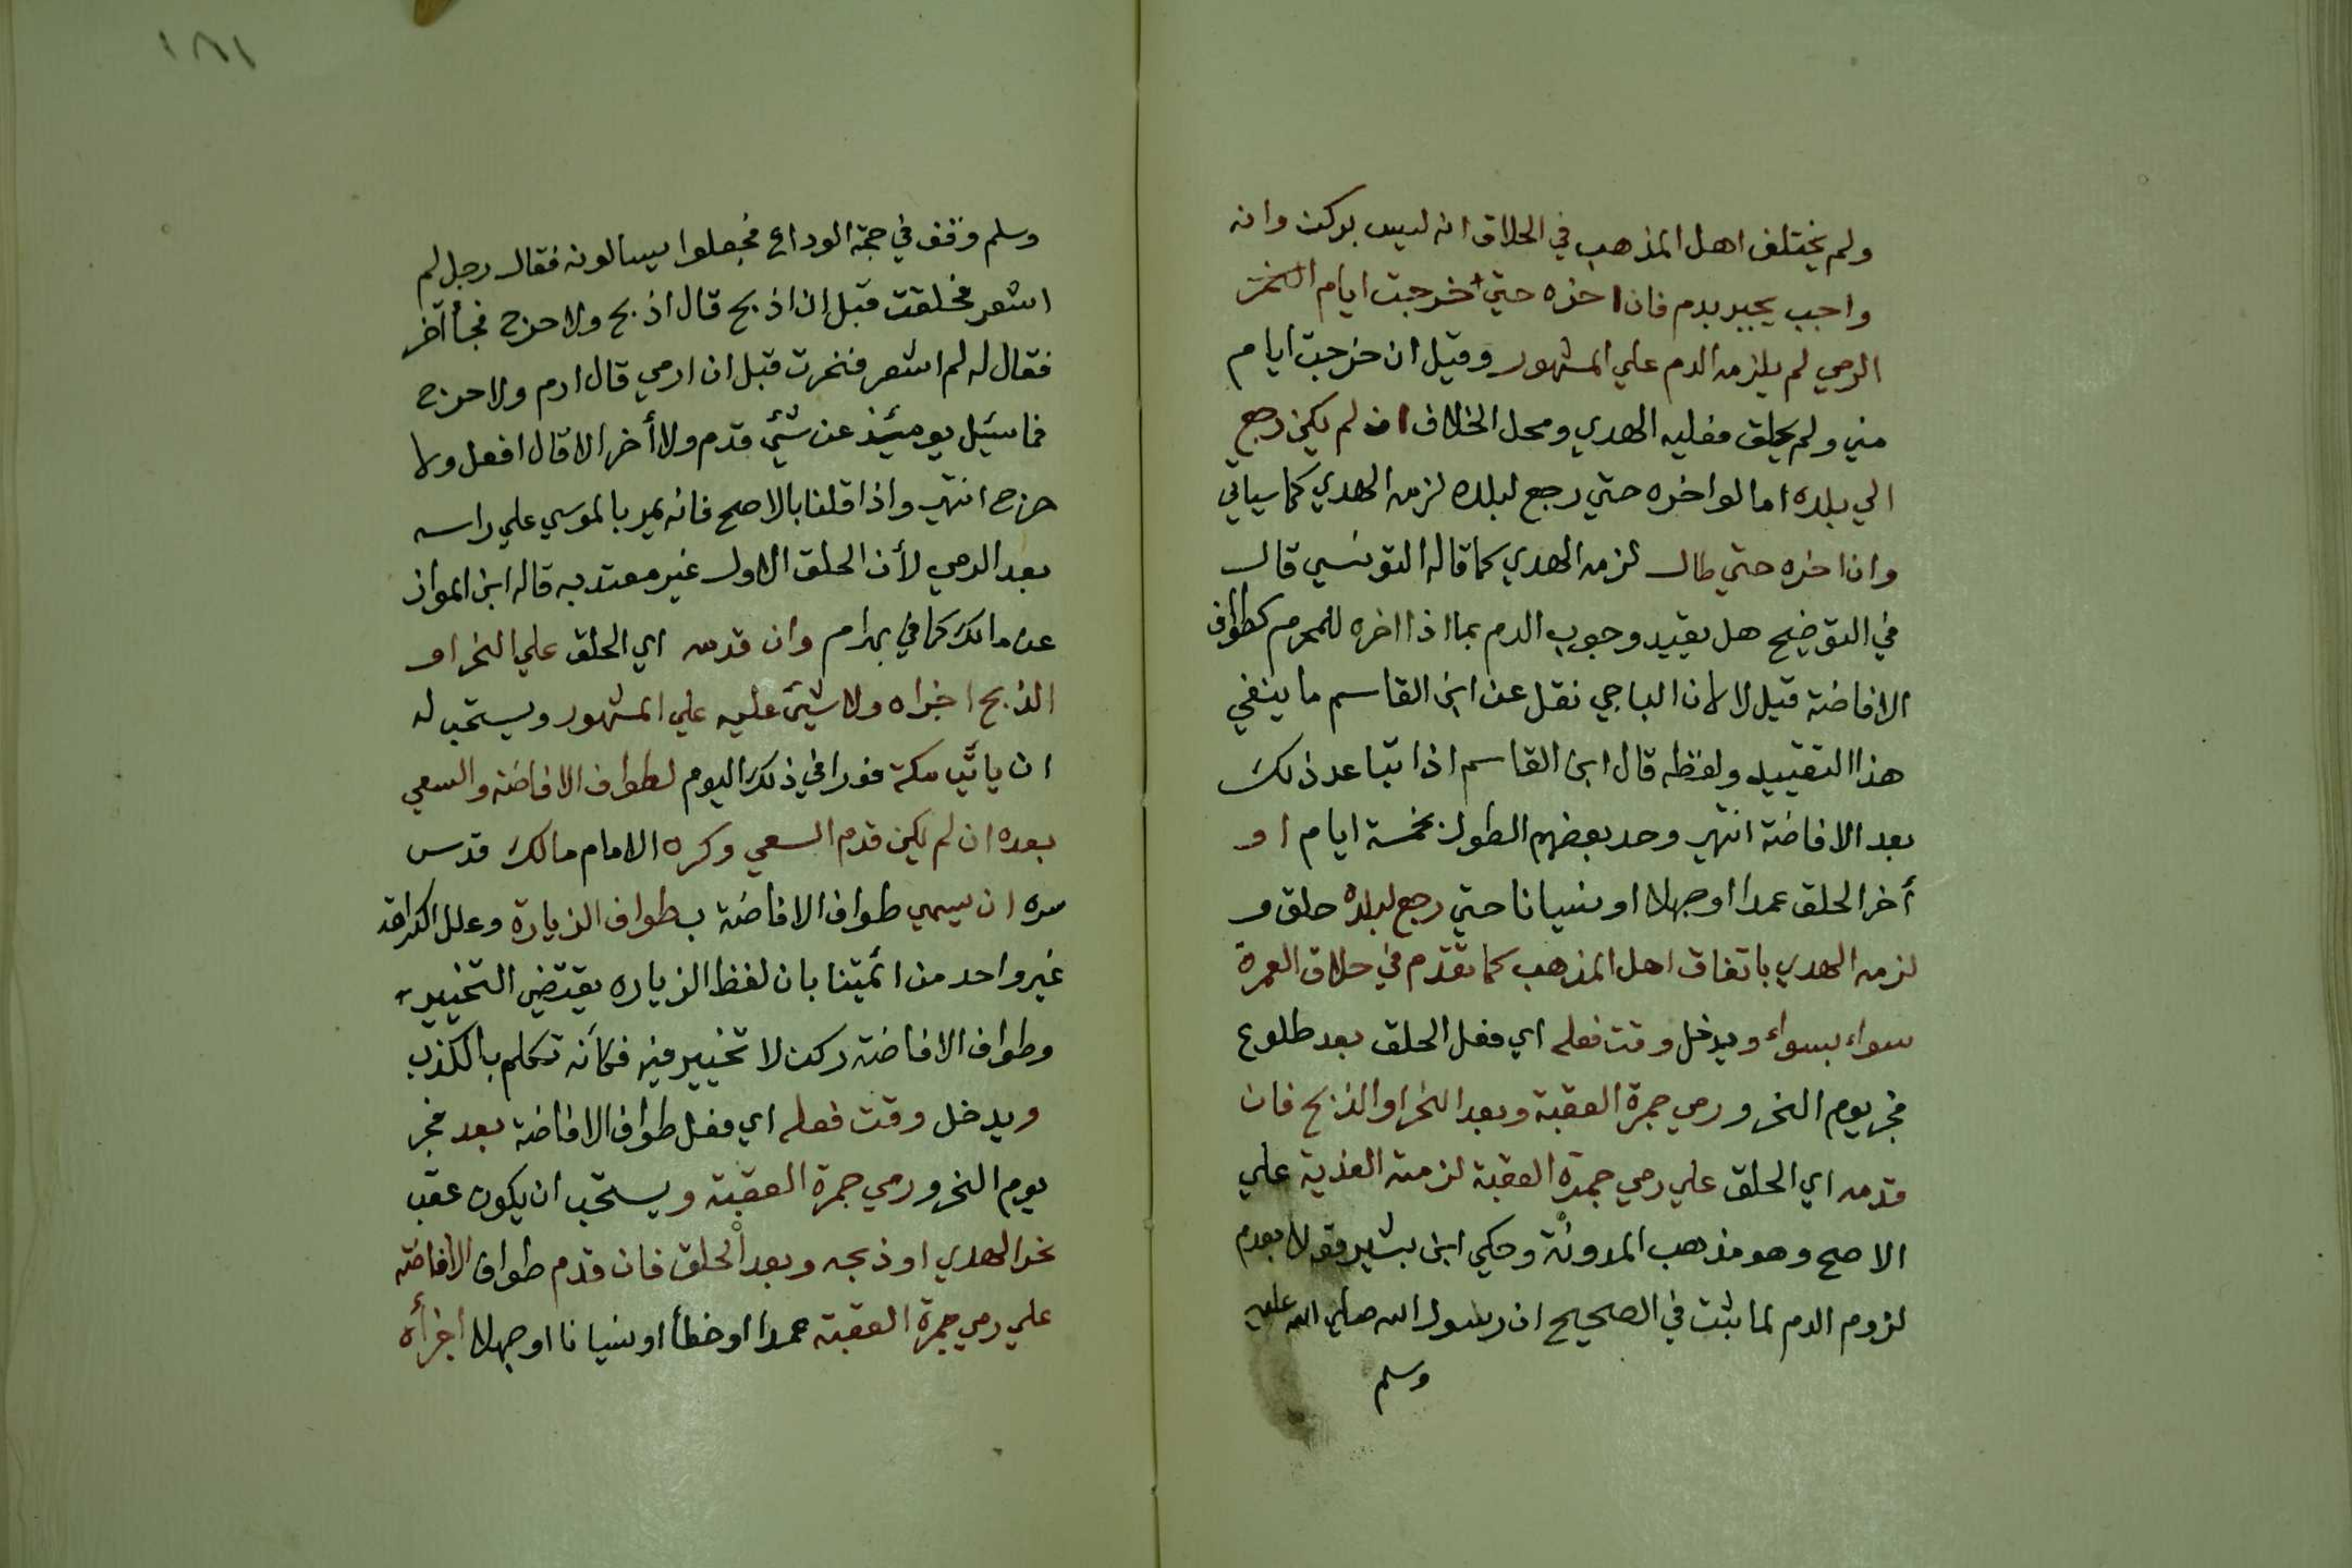 ولم يختلف اهل المذهب في الحلاق انه ليس بركن وانه
واجب يجبر بدم فان اخره حتي خرجت ايام النحر
الرمي لم يلزمه الدم علي المشهور وقيل ان خرجت ايام
مني ولم يحلق فعليه الهدي ومحل الخلاف ان لم يكن رجع
الي بلده اما لو اخره حتي رجع لبلده لزمه الهدي كما سياتي
وان اخره حتي طال لزمه الهدي كما قاله التونسي قال
في التوضيح هل يقيد وجوب الدم بما اذا اخره للمحرم كطواف
الافاضة قيل لا لان الباجي نقل عن ابن القاسم ما ينفي
هذا التقييد ولفظه قال ابن القاسم اذا تباعد ذلك
بعد الافاضة انتهي وحد بعضهم الطول بخمسة ايام او
أخر الحلق عمدا او جهلا او نسيانا حتي رجع لبلده حلق و
لزمه الهدي باتفاق اهل المذهب كما تقدم في حلاق العمرة
سواء بسواء ويدخل وقت فعله اي فعل الحلق بعد طلوع
فجر يوم النحر ورمي جمرة العقبة وبعد النحر او الذبح فان
قدمه اي الحلق علي رمي جمرة العقبة لزمته الفدية علي
الاصح وهو مذهب المدونة وحكي ابن بشير قولا بعدم
لزوم الدم لما ثبت في الصحيح ان رسول الله صلي الله عليه
وسلم
١٨١
وسلم وقف في حجة الوداع فجعلوا يسالونه فقال رجل لم
اشعر فحلقت قبل ان اذبح قال اذبح ولا حرج فجأ آخر
فقال له لم اشعر فنحرت قبل ان ارمي قال ارم ولا حرج
فما سئيل يومئيذ عن شئي قدم ولا أخر الا قال افعل ولا
حرج انتهي واذا قلنا بالاصح فانه يمر بالموسي علي راسه
بعد الرمي لأن الحلق الاول غير معتد به قاله ابن المواز
عن مالك كما في بهرام وان قدمه اي الحلق علي النحر او
الذبح اجزاه ولا شيئ عليه علي المشهور ويستحب له
ان يأتي مكة فورا في ذلك اليوم لطواف الافاضة والسعي
بعده ان لم يكن قدم السعي وكره الامام مالك قدس
سره ان يسمي طواف الافاضة بطواف الزيارة وعلل الكراهة
غير واحد من ائمتنا بان لفظ الزياره يقتضي التخيير
وطواف الافاضة ركن لا تخيير فيه فكأنه تكلم بالكذب
ويدخل وقت فعله اي فعل طواف الافاضة بعد فجر
يوم النحر ورمي جمرة العقبة ويستحب ان يكون عقب
نحر الهدي او ذبحه وبعد الحلق فان قدم طواف الافاضة
علي رمي جمرة العقبة عمدا او خطأ او نسيانا او جهلا اجزأه